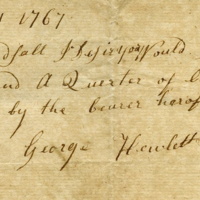 1767
I Desire you Would
and A Quarter of
by the bearer hereof
George Hewlett